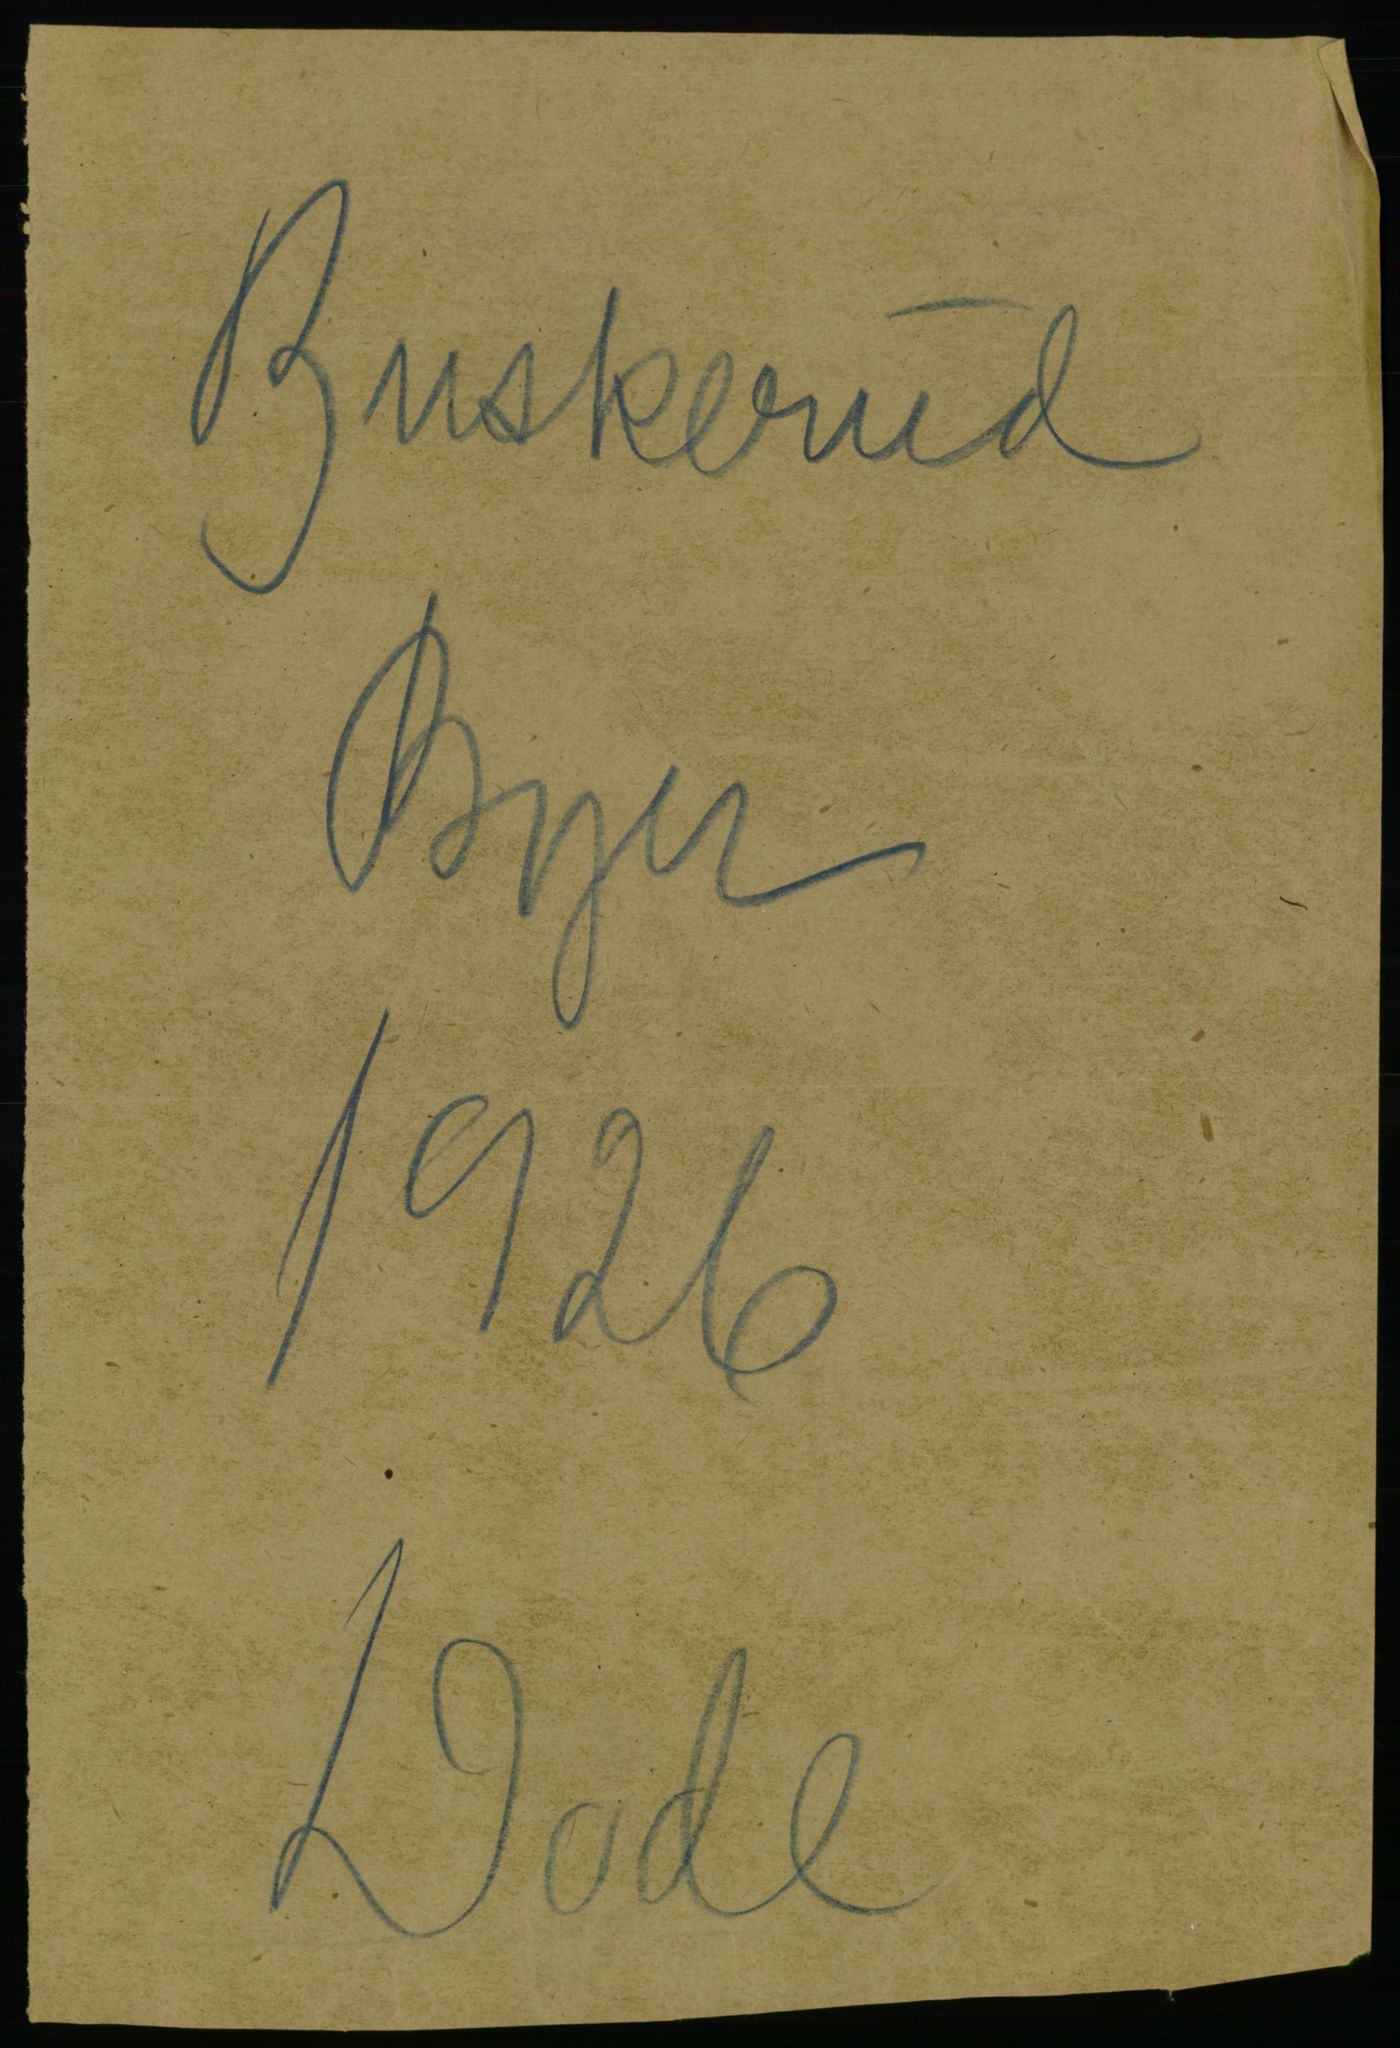 Buskerud
Byer
1926
Dode